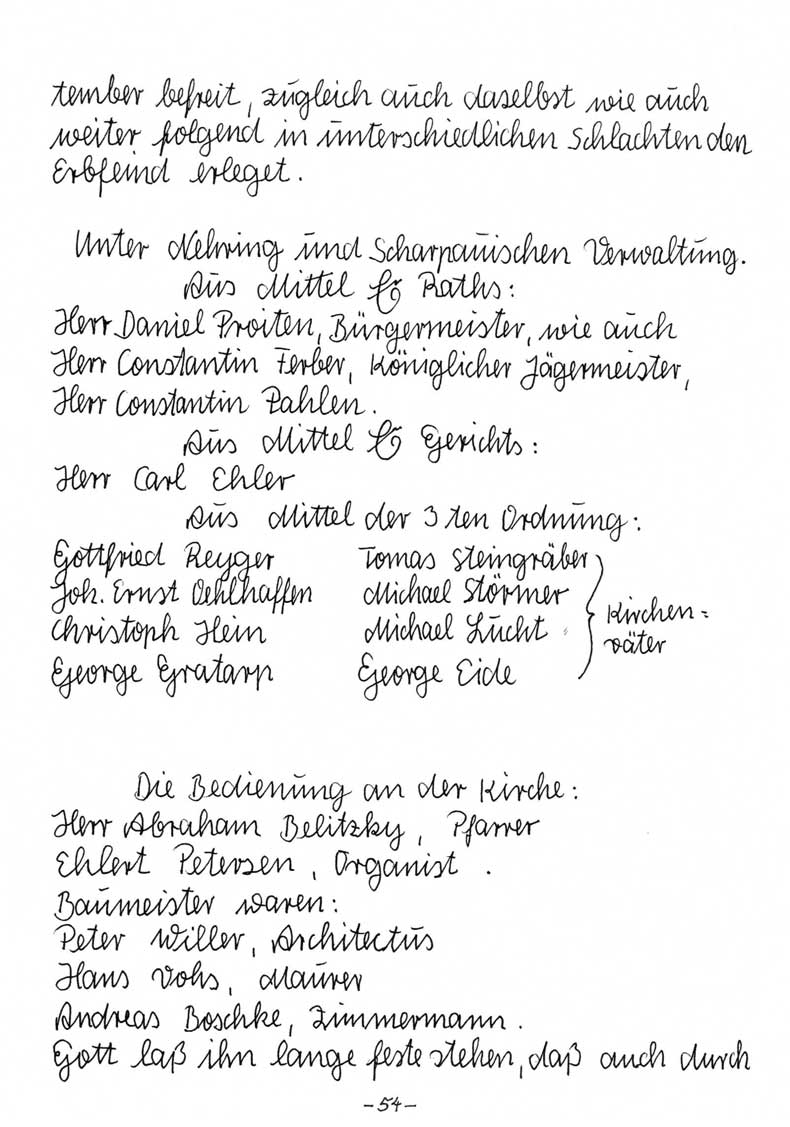 tember befreit, zugleich auch daselbst wie auch
weiter folgend in unterschiedlichen Schlachten den
Erbfeind erleget.
Unter Nehring und Scharpauischen Verwaltung.
Aus Mittel Raths:
Herr Daniel Proiten, Bürgermeister, wie auch
Herr Constantin Ferber, Königlicher Jägermeister,
Herr Constantin Zahlen.
Aus Mittel Gerichts:
Herr Carl Ehler
Aus Mittel der 3 ten Ordnung:
Gottfried Reyger Tomas Steingräber
Joh. Ernst Oehlhaffen Michael Störmer
Christoph Hein Michael Lucht
George Gratarp George Eide
Kirchen=
väter
Die Bedienung an der Kirche:
Herr Abraham Belitzky, Pfarrer
Ehlert Petersen, Organist.
Baumeister waren:
Peter Willer, Architectus
Hans Vohs, Maurer
Andreas Boschke, Zimmermann.
Gott laß ihn lange feste stehen, daß auch durch
-54-